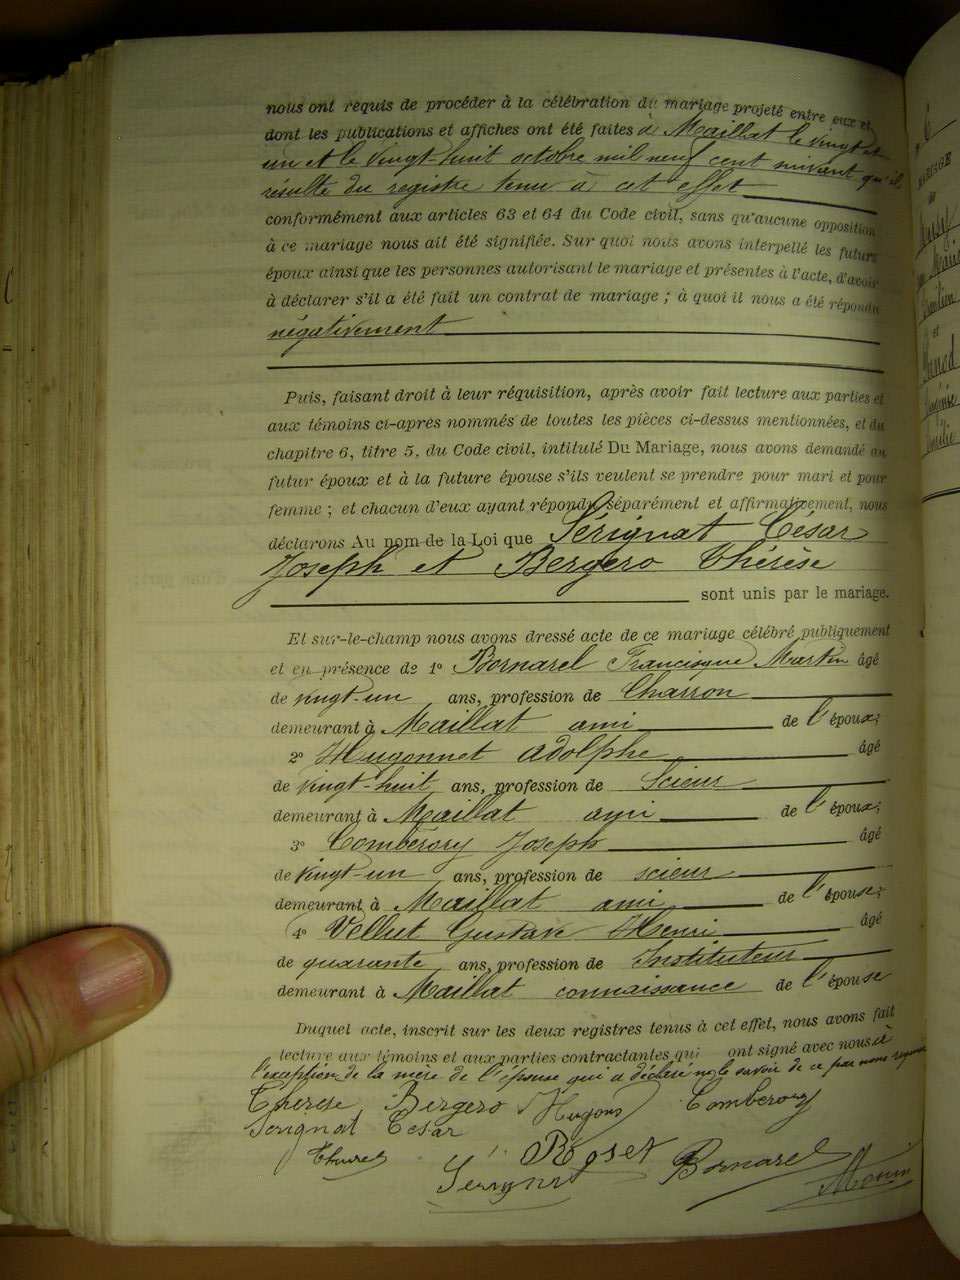 nous ont requis de procéder à la célébration du mariage projeté entre eux et
dont les publications et affiches ont été faites à Maillat le vingt et
un et le vingt-huit octobre mil neuf cent suivant qu'il
résulte du registre tenu à cet effet
conformément aux articles 63 et 64 du Code civil, sans qu'aucune opposition
à ce mariage nous ait été signifiée. Sur quoi nous avons interpellé les futurs
époux ainsi que les personnes autorisant le mariage et présentes à l'acte, d'avoir
à déclarer s'il a été fait un contrat de mariage ; à quoi il nous a été répondu
négativement
Puis, faisant droit à leur réquisition, après avoir fait lecture aux parties et
aux témoins ci-apres nommés de toutes les pièces ci-dessus mentionnées, et du
chapitre 6, titre 5, du Code civil, intitulé Du Mariage, nous avons demandé au
futur époux et à la future épouse s'ils veulent se prendre pour mari et pour
femme ; et chacun d'eux ayant répondu séparément et affirmativement, nous
déclarons Au nom de la Loi que Sérignat César
Joseph et Bergero Thérèse
sont unis par le mariage.
Et sur-le-champ nous avons dressé acte de ce mariage célébré publiquement
et en présence de 1º Bornarel Francisque Martin âgé
de vingt-un ans, profession de Charron
demeurant à Maillat ami de l'époux;
2º Hugonnet Adolphe âgé
de vingt-huit ans, profession de Scieur
demeurant à Maillat ami de l'époux;
3º Comberory Joseph âgé
de vingt-un ans, profession de scieur
demeurant à Maillat ami de l'épouse;
4º Vellut Gustave Henri âgé
de quarante ans, profession de Instituteur
demeurant à Maillat connaissance de l'épouse
Duquel acte, inscrit sur les deux registres tenus à cet effet, nous avons fait
lecture aux témoins et aux parties contractantes qui ont signé avec nous à
l'exception de la mère de l'épouse qui a déclaré ne le savoir de ce par nous
Therese Bergero Hugon Comberory
Serignat Cesar
Roset Bornarel
MARIAGE
de
et